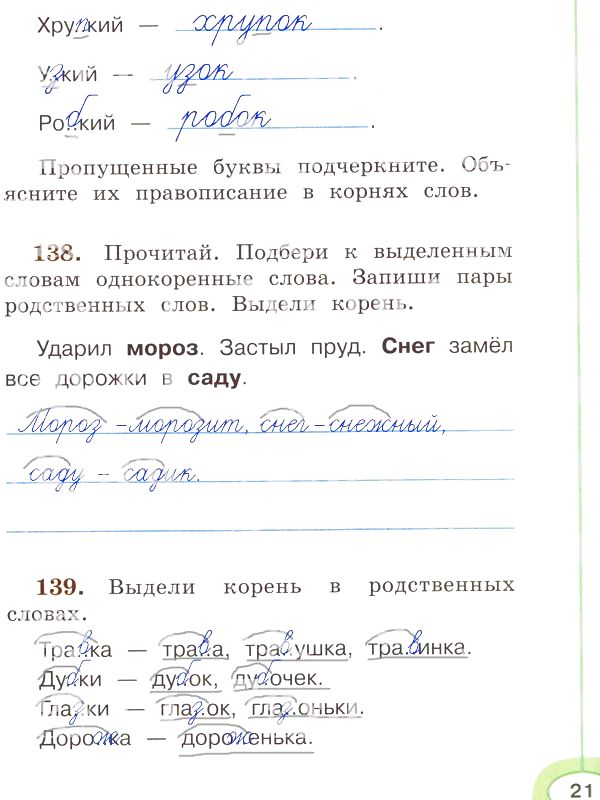 Хрупкий — хрупок.
Узкий — узок.
Робкий — робок.
Пропущенные буквы подчеркните. Объ-
ясните их правописание в корнях слов.
138. Прочитай. Подбери к выделенным
словам однокоренные слова. Запиши пары
родственных слов. Выдели корень.
Ударил мороз. Застыл пруд. Снег замёл
все дорожки в саду.
Мороз – морозит, снег – снежный,
саду – садик.
139. Выдели корень в родственных
словах.
Травка — трава, травушка, травинка.
Дубки — дубок, дубочек.
Глазки — глазок, глазоньки.
Дорожка — дороженька.
21